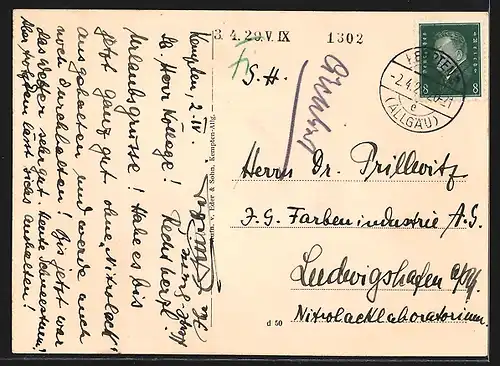 Kempten, 2. IV.
Sg. Herr Kollege!
Urlaubsgrüsse! Habe es bis
jetzt ganz gut ohne „Nitrolack"
ausgehalten und werde auch
noch durchhalten! Bis jetzt war
das Wetter sehr gut. Heute Schneesturm,
Aber trotzdem lasst sich's aushalten!
Rechs herzl.
3 4.29. V. IX 1302
S. H.
KEMPTEN
-2.4.2 20-21
e
(ALLGÄU)
DEUTSCHES REICH
8 8
Herrn Dr. Prillwitz
I. G. Farbenindustrie A. G.
Ludwigshafen a/Rh.
Nitrolacklaboratorium.
v. Eder & Sohn, Kempten-Allg.
d 50